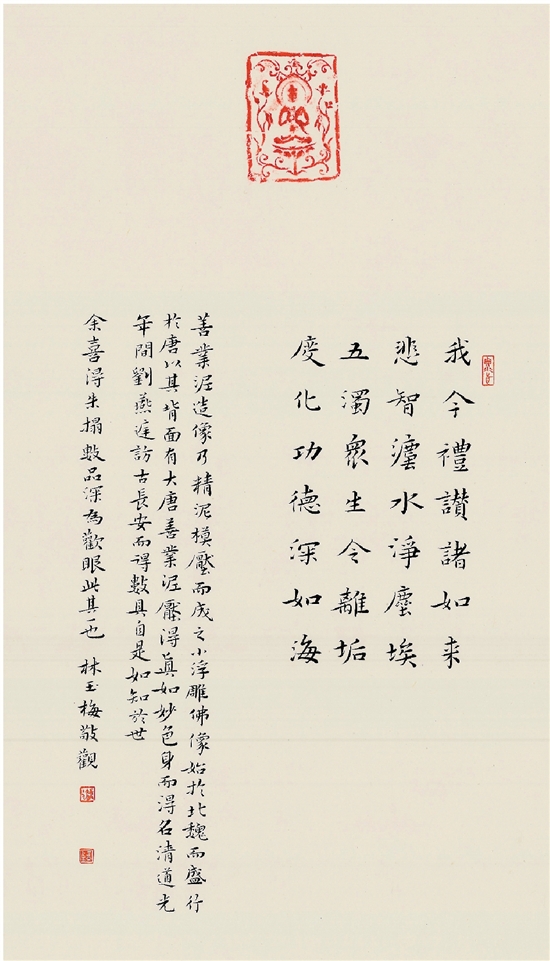 我今禮讚諸如来
悲智灋水淨塵埃
五濁眾生令離垢
度化功德深如海
善業泥造像乃精泥模壓而成之小浮雕佛像始於北魏而盛行
於唐以其背面有大唐善業泥壓得真如妙色身而得名清道光
年間劉燕庭訪古長安而得數具自是如知於世
余喜得朱搨數品深為歡眼此其一也 林玉梅敬觀